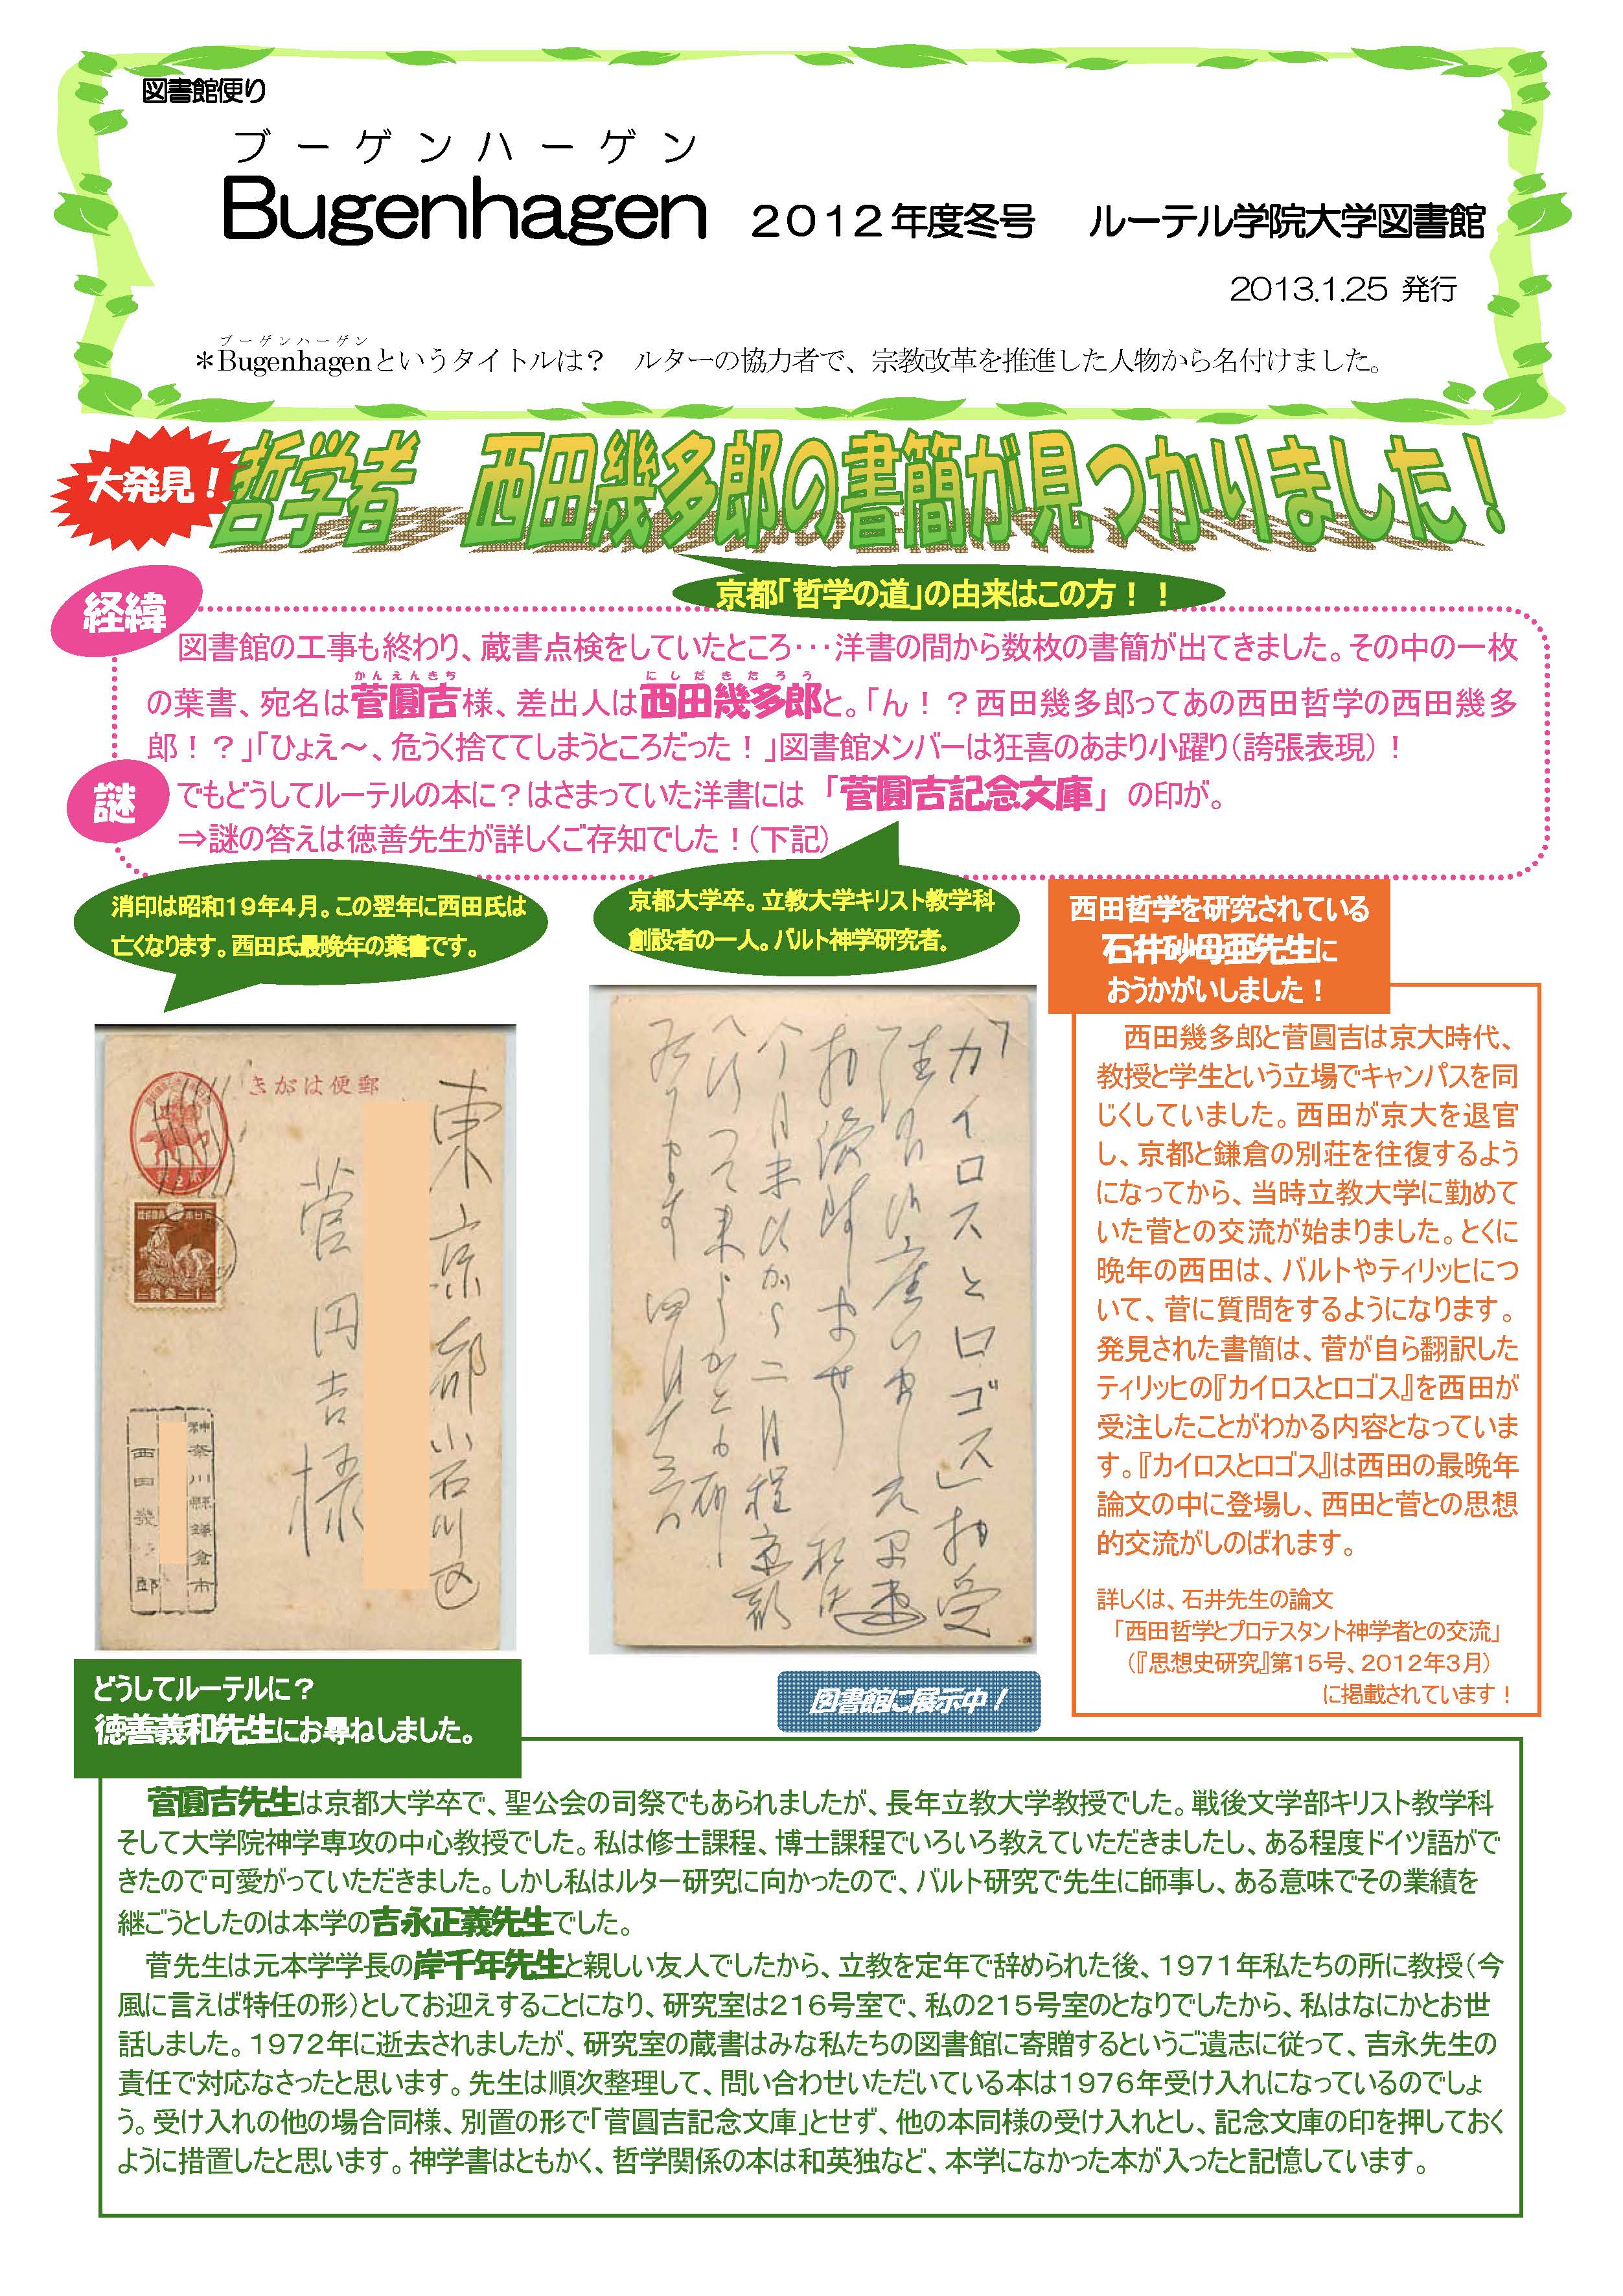 図書館便り
ブーゲンハーゲン
Bugenhagen 2012年度冬号 ルーテル学院大学図書館
2013.1.25 発行
ブーゲンハーゲン
＊Bugenhagenというタイトルは？ ルターの協力者で、宗教改革を推進した人物から名付けました。
大発見！
哲学者 西田幾多郎の書簡が見つかりました！
京都「哲学の道」の由来はこの方！！
経緯
図書館の工事も終わり、蔵書点検をしていたところ…洋書の間から数枚の書簡が出てきました。その中の一枚
かんえんきち にしだきたろう
の葉書、宛名は菅圓吉様、差出人は西田幾多郎と。「ん！？西田幾多郎ってあの西田哲学の西田幾多
郎！？」「ひょえ～、危うく捨ててしまうところだった！」図書館メンバーは狂喜のあまり小躍り（誇張表現）！
謎
でもどうしてルーテルの本に？はさまっていた洋書には「菅圓吉記念文庫」の印が。
⇒謎の答えは徳善先生が詳しくご存知でした！（下記）
消印は昭和19年4月。この翌年に西田氏は
亡くなります。西田氏最晩年の葉書です。
京都大学卒。立教大学キリスト教学科
創設者の一人。バルト神学研究者。
西田哲学を研究されている
石井砂母亜先生に
おうかがいしました！
西田幾多郎と菅圓吉は京大時代、
教授と学生という立場でキャンパスを同
じくしていました。西田が京大を退官
し、京都と鎌倉の別荘を往復するよう
になってから、当時立教大学に勤めて
いた菅との交流が始まりました。とくに
晩年の西田は、バルトやティリッヒにつ
いて、菅に質問をするようになります。
発見された書簡は、菅が自ら翻訳した
ティリッヒの『カイロスとロゴス』を西田が
受注したことがわかる内容となっていま
す。『カイロスとロゴス』は西田の最晩年
論文の中に登場し、西田と菅との思想
的交流がしのばれます。
詳しくは、石井先生の論文
「西田哲学とプロテスタント神学者との交流」
（『思想史研究』第15号、2012年3月）
に掲載されています！
きがは便郵
東京都小石川区
菅円吉様
神奈川縣鎌倉市
西田幾多郎
「カイロスとロゴス」拝受
今月末頃から二月程京都
へ行って来ようかとも
居ります 四月十三日
図書館に展示中！
どうしてルーテルに？
徳善義和先生にお尋ねしました。
菅圓吉先生は京都大学卒で、聖公会の司祭でもあられましたが、長年立教大学教授でした。戦後文学部キリスト教学科
そして大学院神学専攻の中心教授でした。私は修士課程、博士課程でいろいろ教えていただきましたし、ある程度ドイツ語がで
きたので可愛がっていただきました。しかし私はルター研究に向かったので、バルト研究で先生に師事し、ある意味でその業績を
継ごうとしたのは本学の吉永正義先生でした。
菅先生は元本学学長の岸千年先生と親しい友人でしたから、立教を定年で辞められた後、1971年私たちの所に教授（今
風に言えば特任の形）としてお迎えすることになり、研究室は216号室で、私の215号室のとなりでしたから、私はなにかとお世
話しました。1972年に逝去されましたが、研究室の蔵書はみな私たちの図書館に寄贈するというご遺志に従って、吉永先生の
責任で対応なさったと思います。先生は順次整理して、問い合わせいただいている本は1976年受け入れになっているのでしょ
う。受け入れの他の場合同様、別置の形で「菅圓吉記念文庫」とせず、他の本同様の受け入れとし、記念文庫の印を押しておく
ように措置したと思います。神学書はともかく、哲学関係の本は和英独など、本学になかった本が入ったと記憶しています。